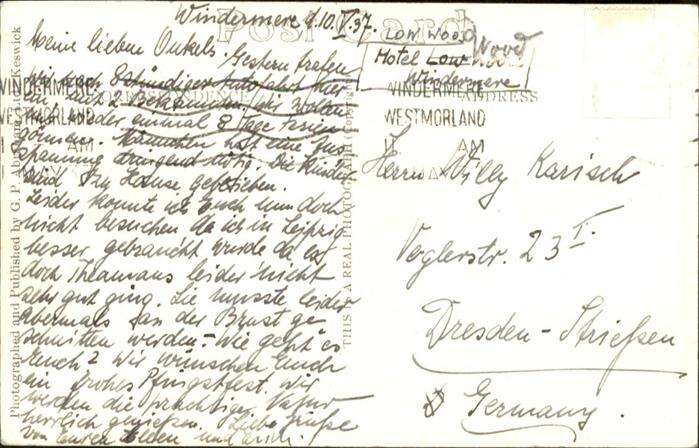 Windermere d. 10. V. 37.
Post Card
Meine lieben Onkels. Gestern trafen
wir nach 8stündiger Autofahrt hier
ein mit 2 Bekannten. Wir wollen
wieder einmal 8 Tage Ferien
können. Männchen hat eine Aus-
spannung dringend nötig. Die Kinder
sind zu Hause geblieben.
Leider konnte ich Euch nun doch
nicht besuchen da ich in Leipzig
besser gebraucht wurde da es
doch Theamans leider nicht
sehr gut ging. Sie musste leider
abermals an der Brust ge-
schnitten werden. – Wie geht es
Euch? Wir wünschen Euch
ein frohes Pfingstfest. Wir
werden die prächtige Natur
herrlich genießen. Liebe Grüße
von Euren und auch.
LOW WOOD
Hotel Low Wood
Windermere
ADDRESS
WINDERMERE
WESTMORLAND
AM
WINDERMERE
WESTMORLAND
11 AM
Herrn Willy Karisch
Voglerstr. 23 I.
Dresden-Striefsen
Germany.
Photographed and Published by G. P. Abraham, Ltd., Keswick
THIS IS A REAL PHOTOGRAPH (Copyright)